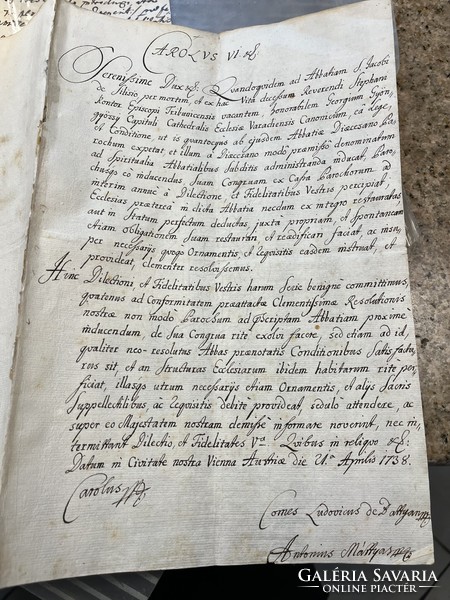 CAROLVS VI &c.
Serenissime Dux &c. Quandoquidem ad Abbatiam S. Jacobi
de Silisio per mortem, et ex hac Vita decessum Reverendi Stephani
Kontor Episcopi Tribuniensis vacantem, honorabilem Georgium Gyön,,
gyössy Capituli Cathedralis Ecclesiæ Varadiensis Canonicum, ea Lege
et Conditione, ut is quantocyus ab ejusdem Abbatiæ Diœcesano Pa,,
rochum expetat, et illum à Diœcesano modo præmisso denominatum
ad Spiritualia Abbatialibus Subditis administranda inducat, Paro,,
choque co inducendo, Suam Congruam ex Cassa Parochorum ad
interim annuè à Dilectione, et Fidelitatibus Vestris percipiat,
Ecclesias prætereà in dicta Abbatia necdum ex integro restauratas
aut in Statum perfectum deductas, juxta propriam, et Spontaneam
Etiam obligationem Suam restaurari, et readificari faciat, ac mise,,
per necessarijs quoque Ornamentis, et requisitis easdem instruat, et
provideat, Clementer resolvissemus.
Hinc Dilectioni, et Fidelitatibus Vestris harum Serie benignè committimus,
quatenus ad Conformitatem præattactæ Clementissimæ Resolutionis
nostræ non modò Parochum ad præscriptam Abbatiam proximè
inducendum, de Sua Congrua ritè exolvi facere, sed etiam ad id,
qualiter neo-resolutus Abbas prænotatis Conditionibus Satis factu,,
rus sit, et an Structuras Ecclesiarum ibidem habitarum ritè per,,
ficiat, illasque utrum necessarijs Etiam Ornamentis, et alijs Sacris
Suppellectilibus, ac requisitis debitè provideat, sedulò attendere, ac
super eo Majestatem nostram demissè informare noverint, nec in,,
termittant Dilectio, et Fidelitates Væ. Quibus in reliquo &c.
Datum in Civitate nostra Vienna Austriæ die 21a Aprilis 1738.
Carolus
Comes Ludovicus de Battyan
Antonius Mattyas
GALÉRIA SAVARIA
ONLINE PIACTÉR